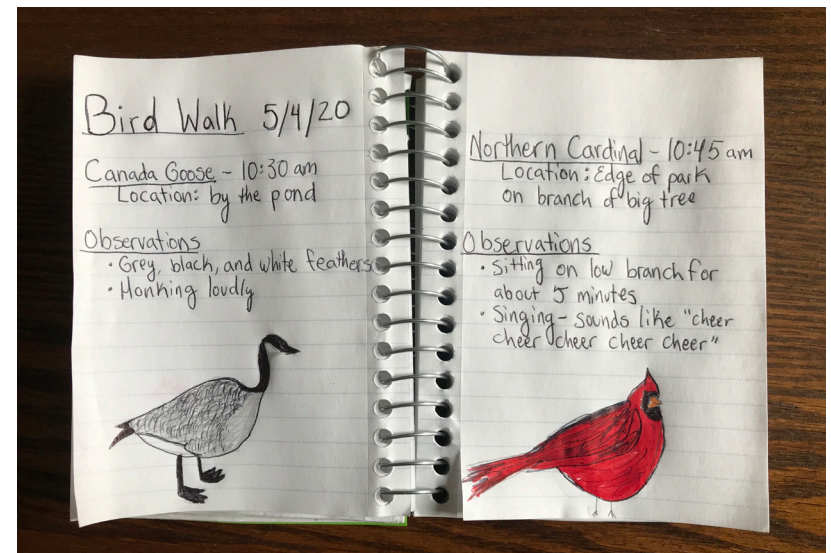 Bird Walk 5/4/20
Canada Goose - 10:30 am
Location: by the pond
Observations
· Grey, black, and white feathers
· Honking loudly
Northern Cardinal - 10:45 am
Location: Edge of park
on branch of big tree
Observations
· Sitting on low branch for
about 5 minutes
· Singing - sounds like "cheer
cheer cheer cheer cheer"